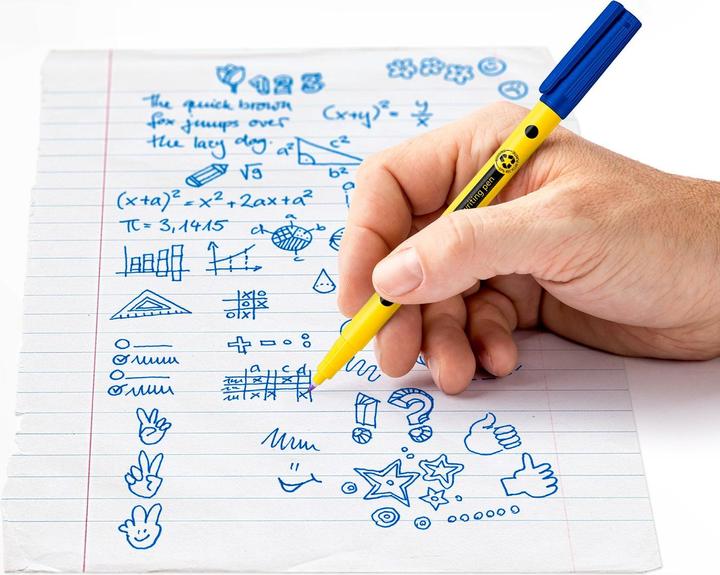 1 2 3
the quick brown
fox jumps over
the lacy dog.
(x+y)² = y/x
a² c² b²
√9
(x+a)² = x² + 2ax + a²
π = 3,1415
a
c
x o
o x
o x
+ − ∘ ÷
a c d
x x
x x x
! ?
writing pen